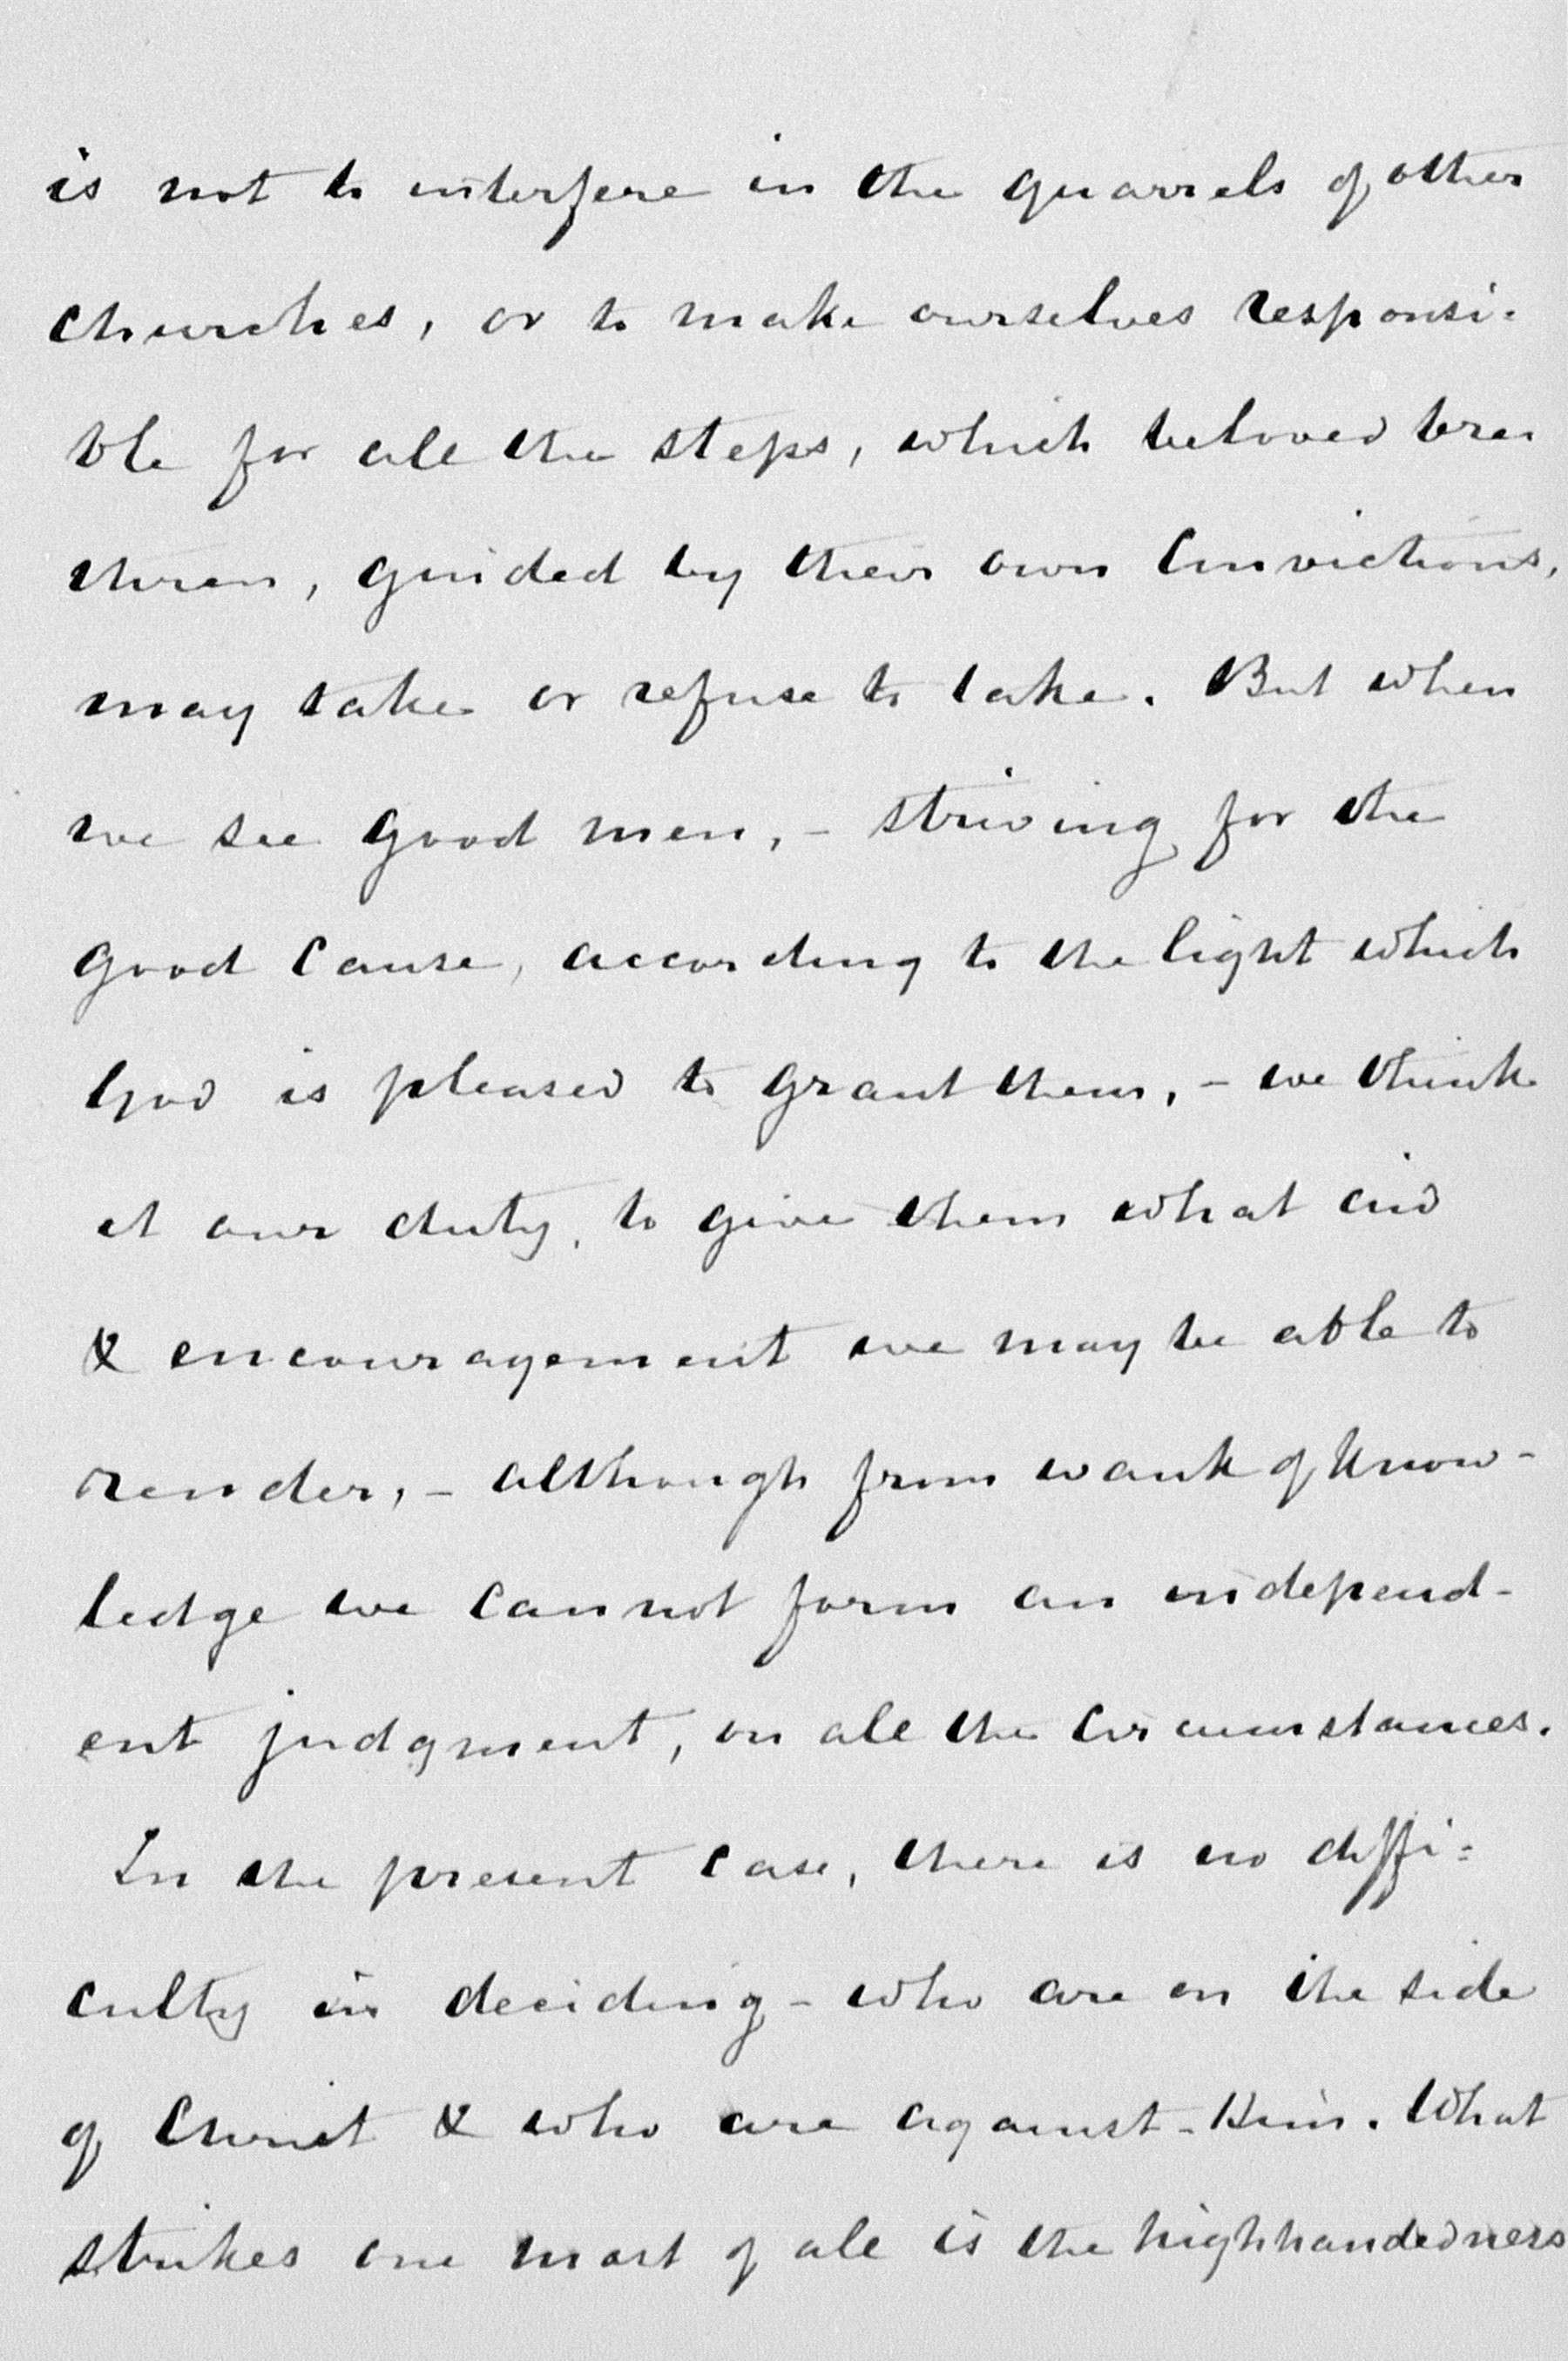 is not to interfere in the quarrels of other
churches, or to make ourselves responsi=
ble for all the steps, which beloved bre=
thren, guided by their own convictions,
may take or refuse to take. But when
we see good men, - striving for the
good cause, according to the light which
God is pleased to grant them, - we think
it our duty, to give them what aid
& encouragement we may be able to
render, - although from want of know-
ledge we cannot form an independ-
ent judgment, on all the circumstances.
In the present case, there is no diffi=
culty in deciding - who are on the side
of Christ & who are against - Him. What
strikes one most of all is the highhandedness